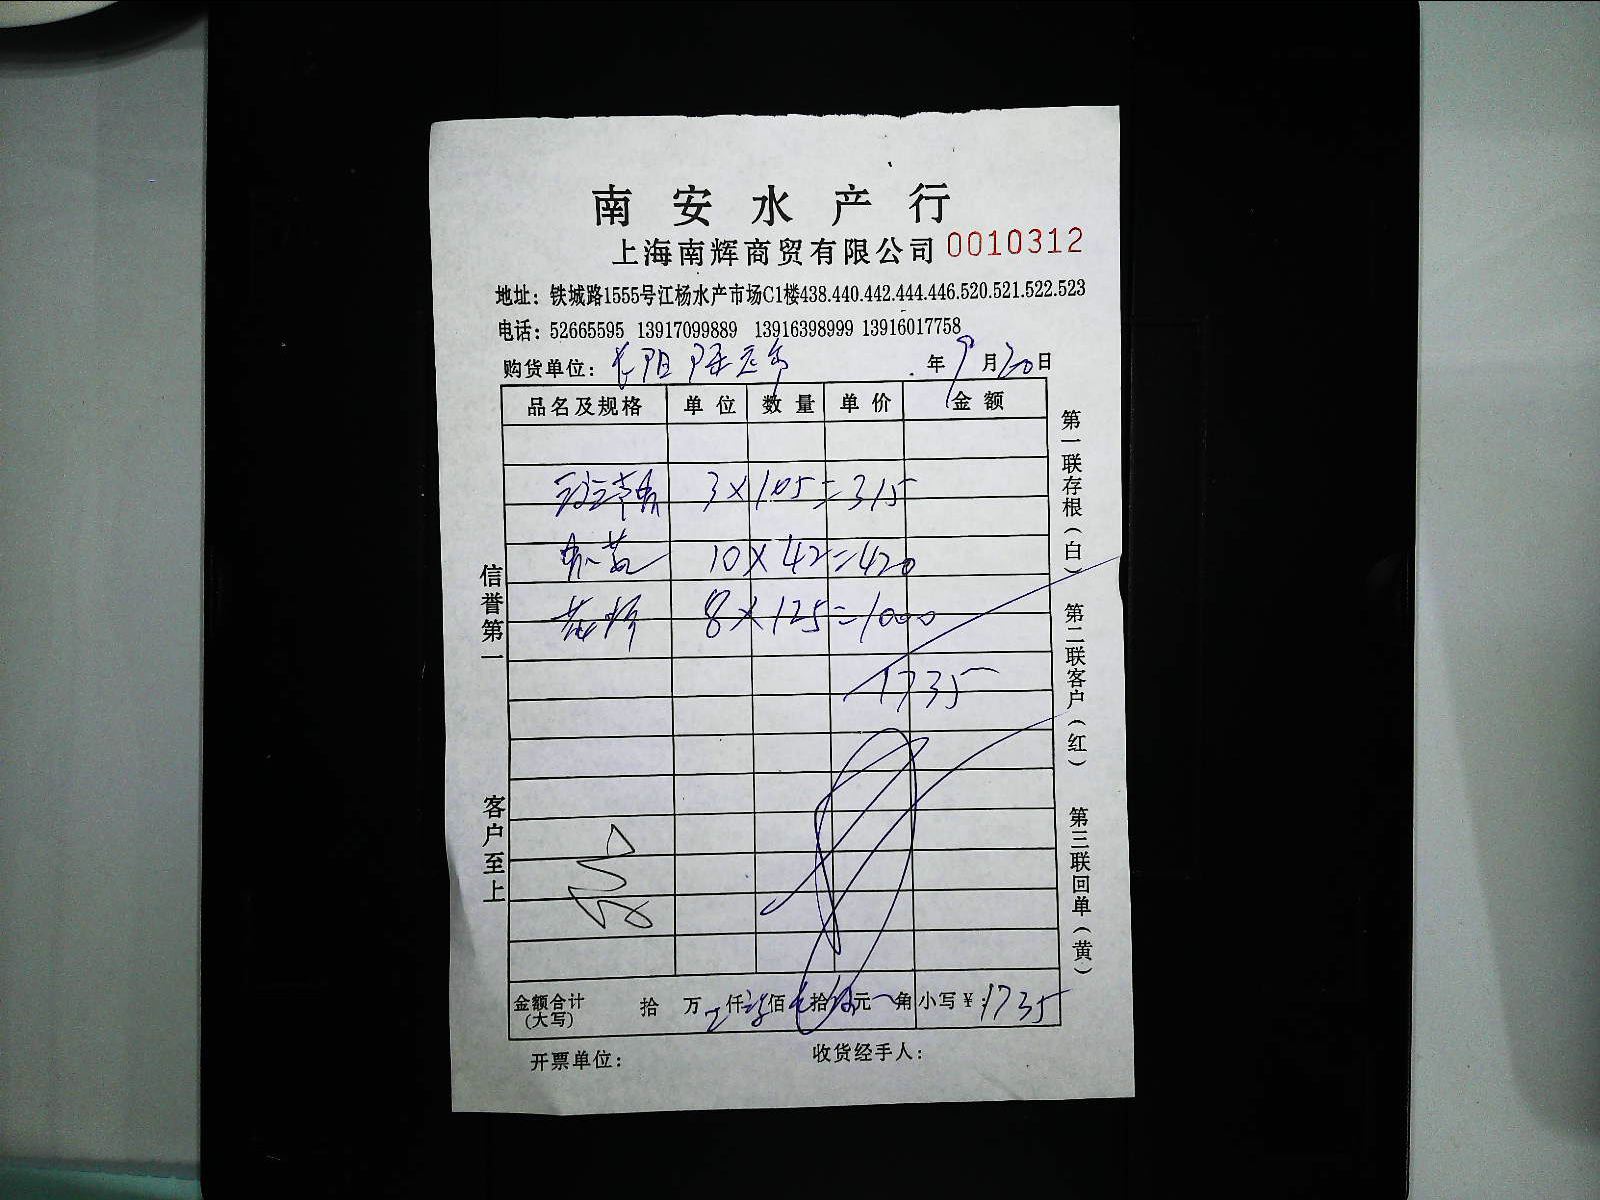 南安水产行
上海南辉商贸有限公司 0010312
地址：铁城路1555号江杨水产市场C1楼438.440.442.444.446.520.521.522.523
电话：52665595 13917099889 13916398999 13916017758
购货单位：长阳 年9月20日
品名及规格 单位 数量 单价 金额
3×105=315
10×42=420
8×125=1000
1735
金额合计(大写) 拾 万 仟 佰 拾 元 角 小写￥：1735
开票单位： 收货经手人：
信誉第一 客户至上
第一联存根（白） 第二联客户（红） 第三联回单（黄）